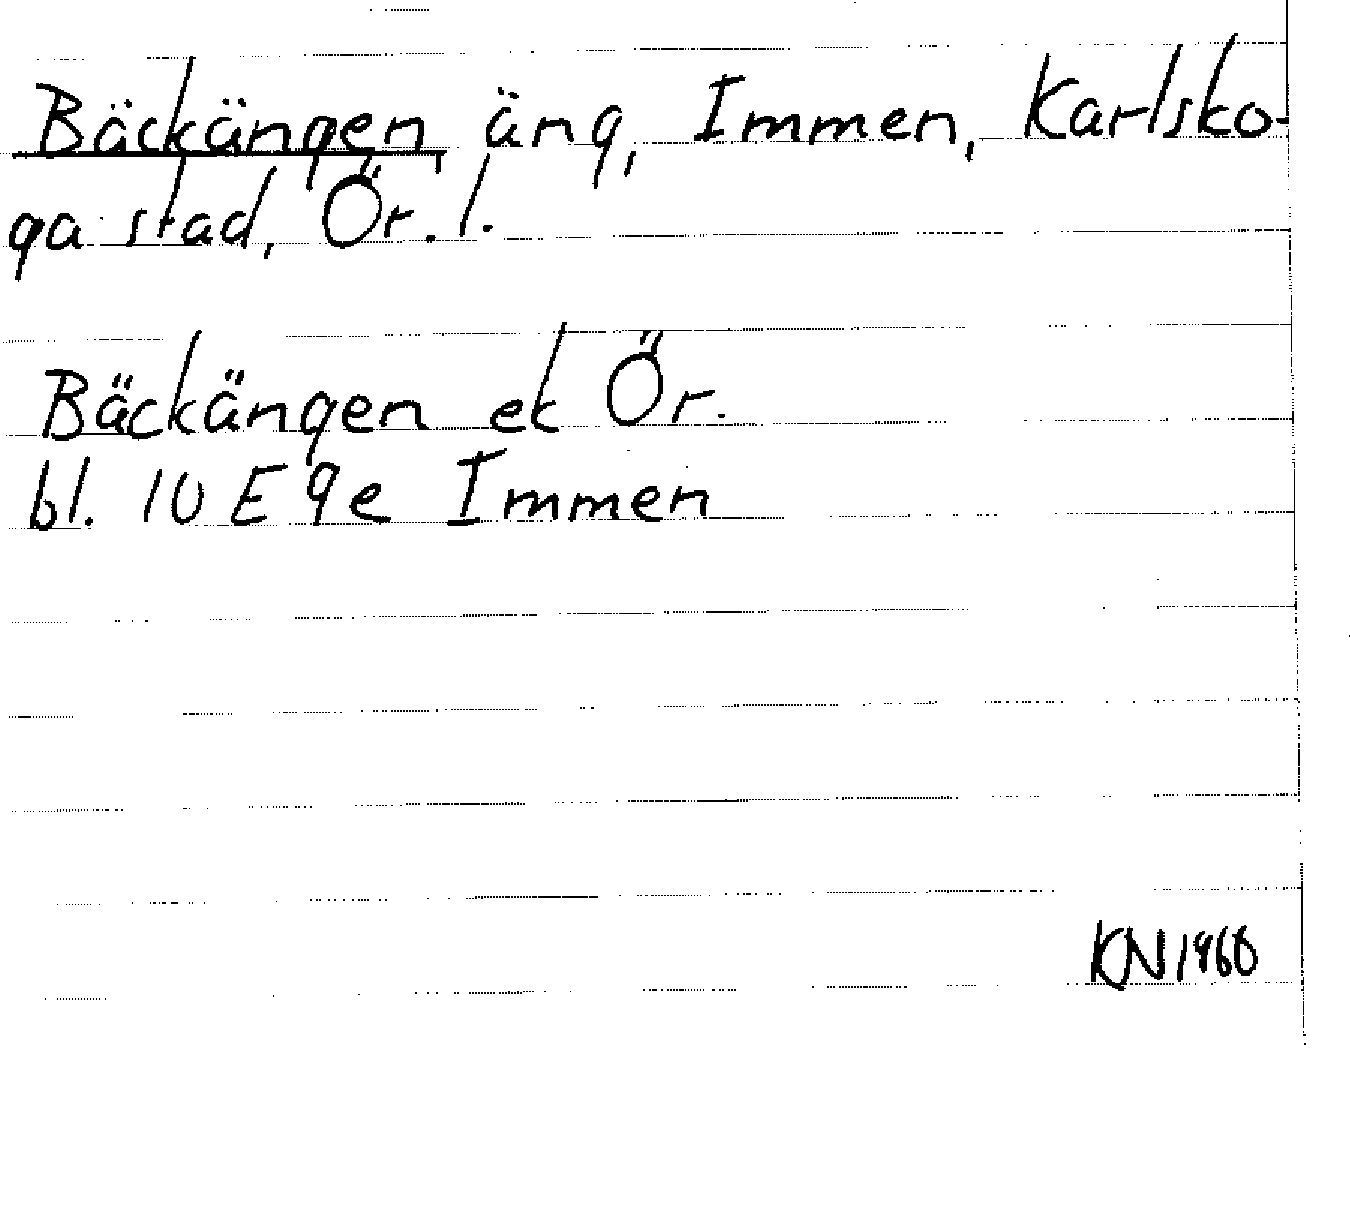 Bäckängen, äng, Immen, Karlsko-
ga stad, Ör. l.
Bäckängen ek Ör.
bl. 10 E 9e Immen
KN 1968